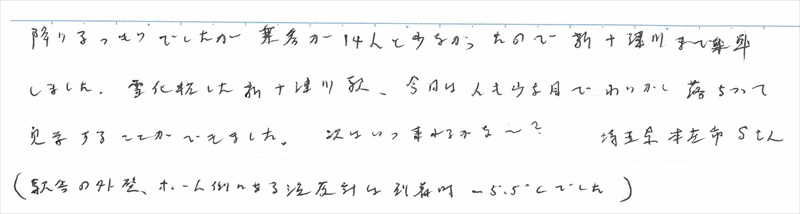 降りるつもりでしたが乗客が14人と少なかったので新十津川まで乗車
しました。雪化粧した新十津川駅、今日は人も少な目でわりかし落ちついて
見学することができました。次はいつ来れるかな〜? 埼玉県本庄市Sさん
(駅舎の外壁、ホーム側にある温度計は到着時-5.5℃でした)